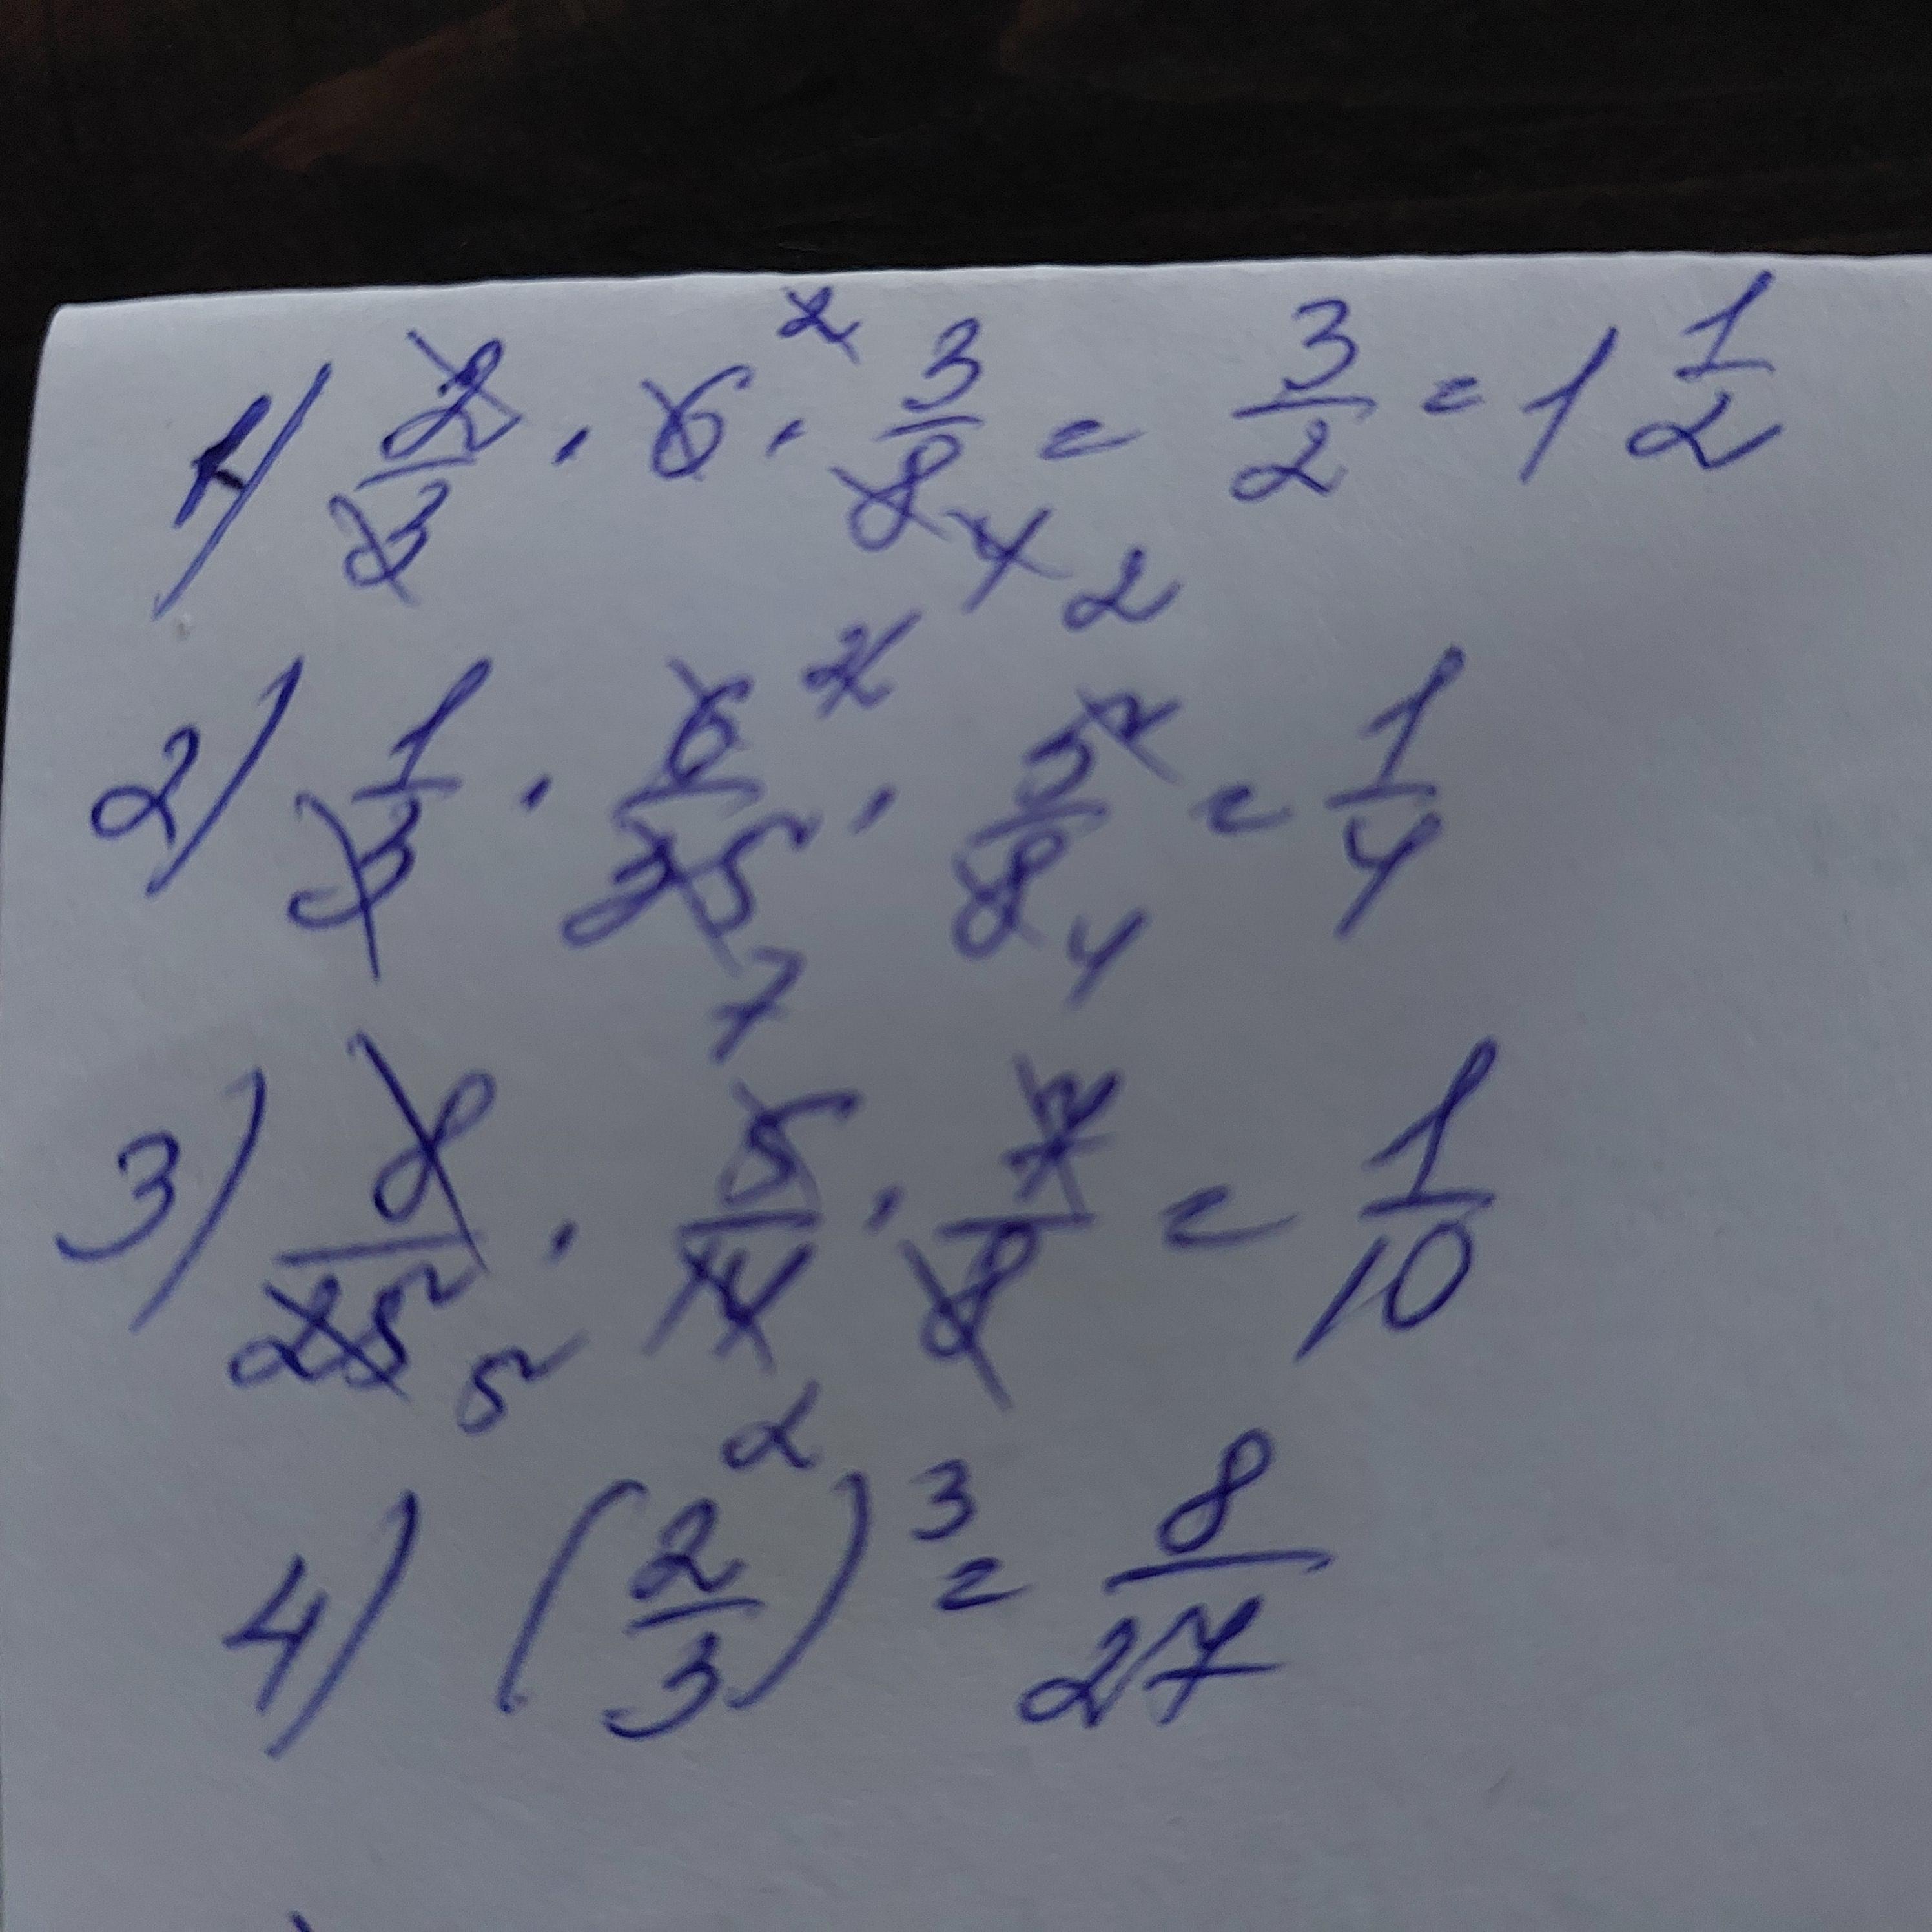 1) 2/3 · 6 2 · 3/8 4 2 = 3/2 = 1 1/2
2) 1/3 · 6/35 2 7 · 5/8 4 = 1/4
3) 8/25 5 · 5/14 2 · 7/8 = 1/10
4) (2/3)³ = 8/27